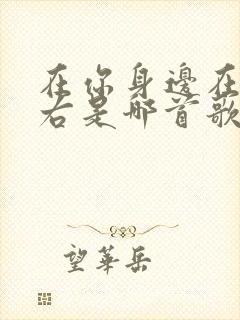 在你身邊在
右是哪首歌
望華岳